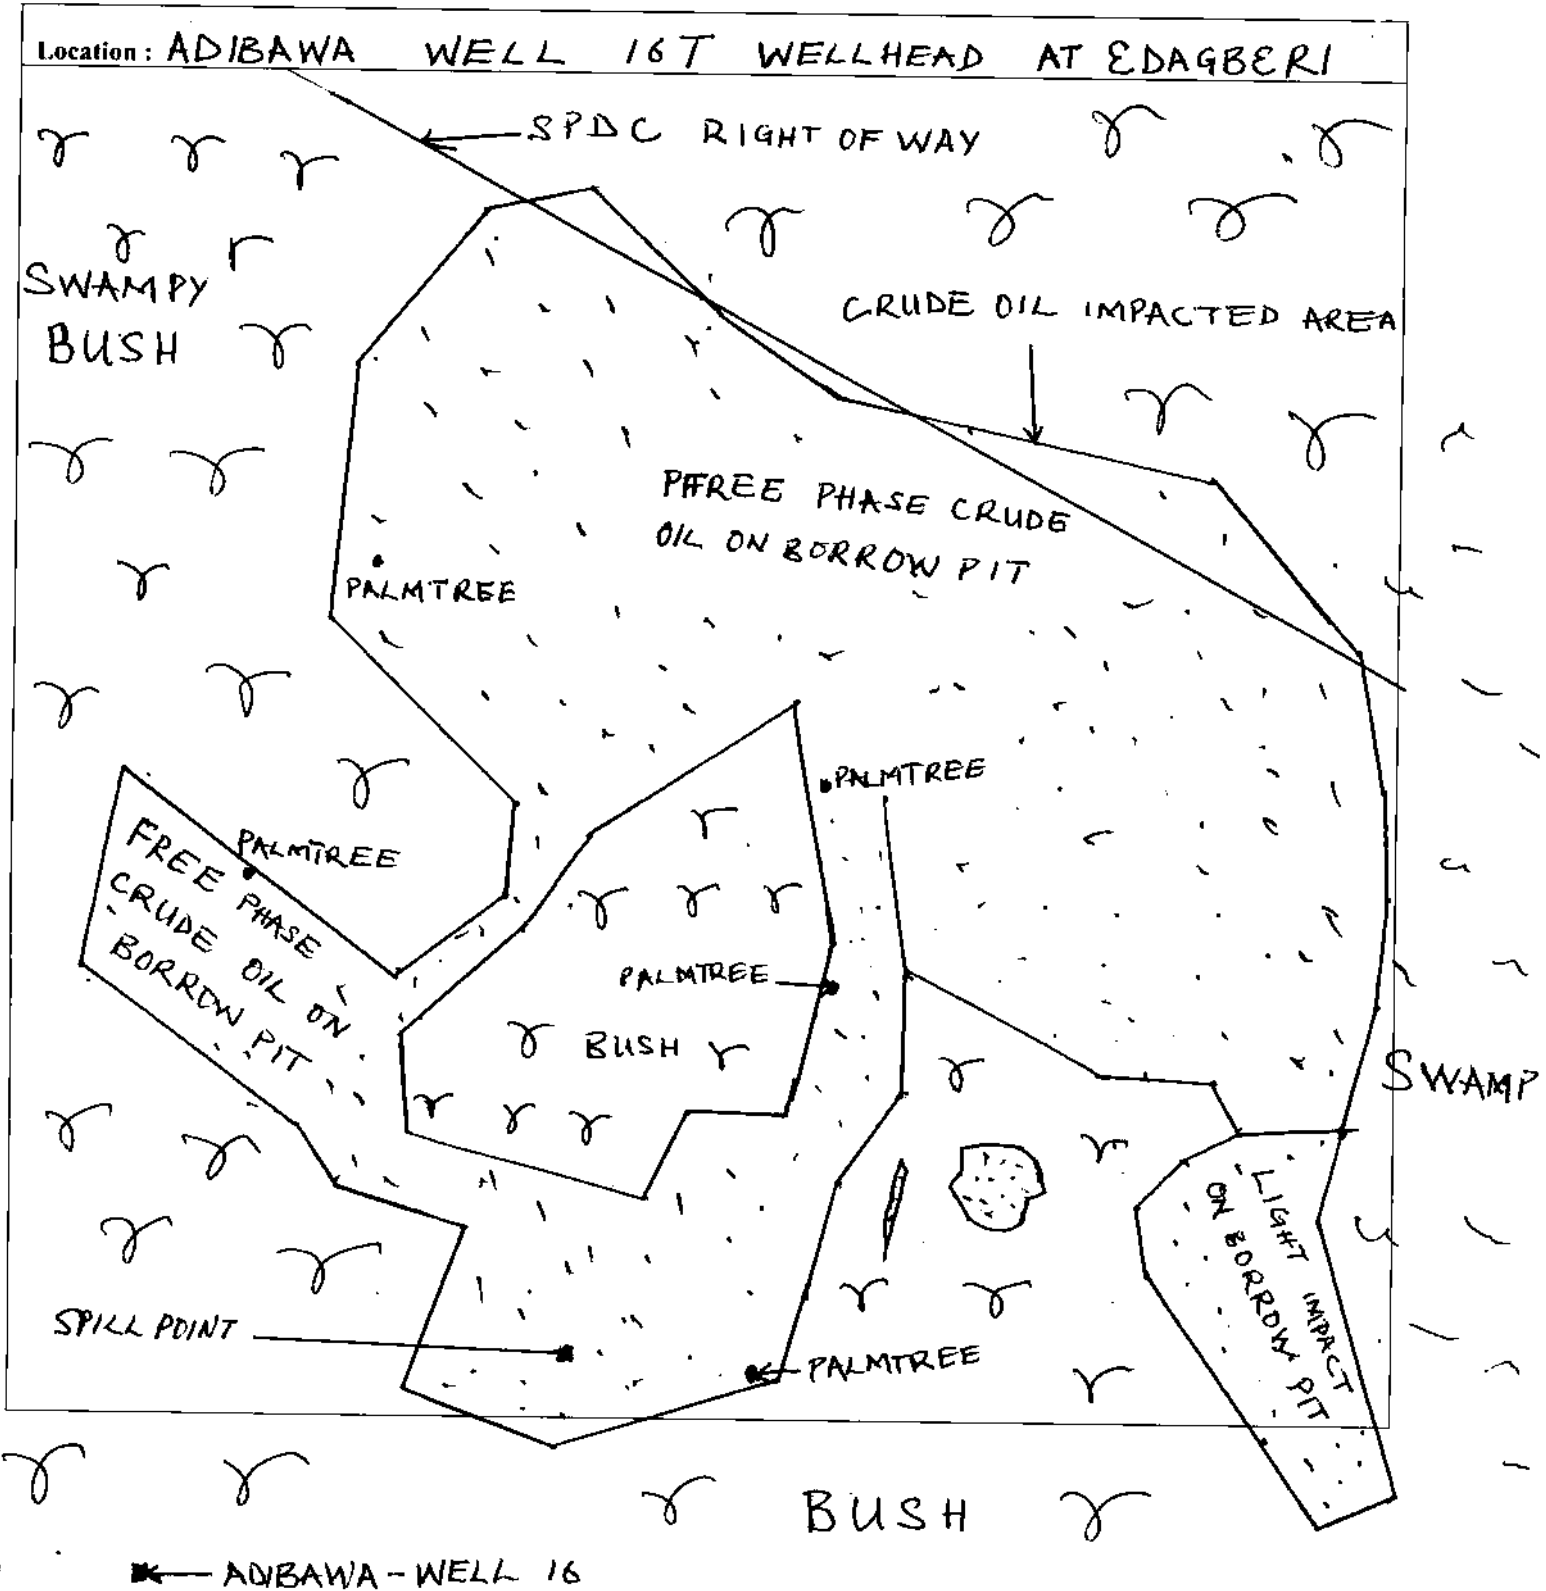 Location : ADIBAWA WELL 16T WELLHEAD AT EDAGBERI
SPDC RIGHT OF WAY
SWAMPY
BUSH
CRUDE OIL IMPACTED AREA
PFFREE PHASE CRUDE
OIL ON BORROW PIT
PALMTREE
PALMTREE
PALMTREE
FREE PHASE
CRUDE OIL ON
BORROW PIT
PALMTREE
BUSH
SWAMP
LIGHT IMPACT
ON BORROW PIT
SPILL POINT
PALMTREE
BUSH
ADIBAWA - WELL 16